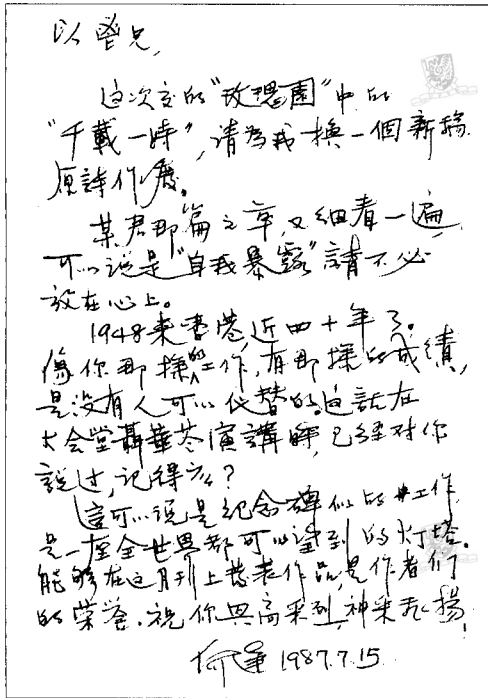 以鬯兄,
这次交的"玫瑰園"中的
"千載一時",请為我換一個新稿.
原詩作廢。
某君那篇文章,又細看一遍,
可以说是"自我暴露"請不必
放在心上。
1948来香港,近四十年了。
像你那樣的工作,有那樣的成績,
是没有人可以代替的。这話在
大会堂聶華苓演講時,已经对你
說过,记得么?
這可以说是纪念碑似的工作,
是一座全世界都可以望到的灯塔.
能够在这月刊上發表作品,是作者们
的荣誉.祝你興高采烈,神采飞揚!
何達 1987.7.15